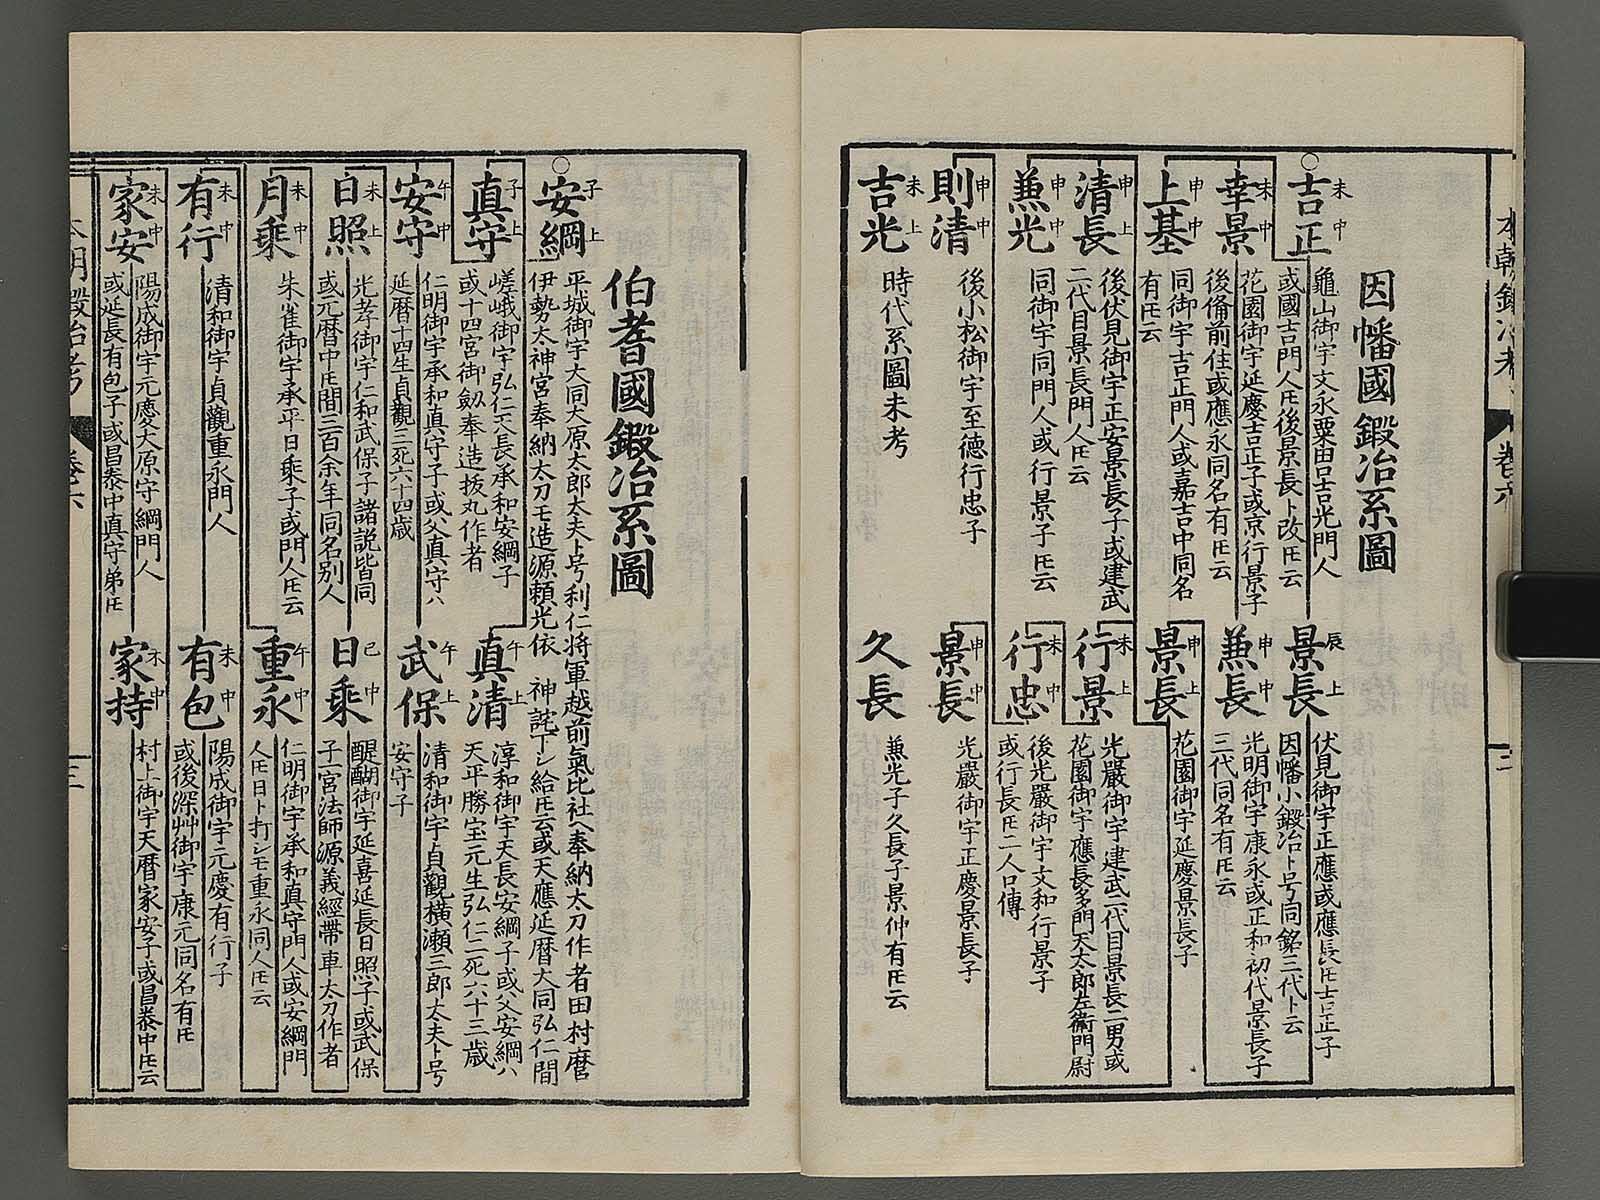 本朝鍛冶考
卷六
二
因幡國鍛冶系圖
○吉正
未中
龜山御宇文永粟田口吉光門人
或國吉門人㐧後景長ト改㐧云
景長
辰上
伏見御宇正應或應長㐧吉正子
因幡小鍛冶ト号同銘三代ト云
幸景
未中
花園御宇延慶吉正子或京行景子
後備前住或應永同名有㐧云
兼長
申中
光明御宇康永或正和初代景長子
三代同名有㐧云
上基
申中
同御宇吉正門人或嘉吉中同名
有㐧云
景長
申上
花園御宇延慶景長子
清長
申上
後伏見御宇正安景長子或建武
二代目景長門人㐧云
行景
未上
光嚴御宇建武二代目景長二男或
花園御宇應長多門天太郎左衛門尉
兼光
申中
同御宇同門人或行景子㐧云
行忠
未中
後光嚴御宇文和行景子
或行長㐧二人口傳
則清
申中
後小松御宇至徳行忠子
景長
申中
光嚴御宇正慶景長子
吉光
未上
時代系圖未考
久長
兼光子久長子景仲有㐧云
伯耆國鍛冶系圖
○安綱
子上
平城御宇大同大原太郎大夫ト号利仁将軍越前氣比社へ奉納太刀作者田村麿
伊勢太神宮奉納太刀モ造源頼光依 神詫下シ給㐧云或天應延暦大同弘仁間
真守
子上
嵯峨御宇弘仁天長承和安綱子
或十四宮御劔奉造抜丸作者
真清
午上
淳和御宇天長安綱子或父安綱ハ
天平勝宝元生弘仁二死六十三歳
安守
午中
仁明御宇承和真守子或父真守ハ
延暦十四生貞觀三死六十四歳
武保
午上
清和御宇貞觀横瀬三郎大夫ト号
安守子
日照
未上
光孝御宇仁和武保子諸説皆同
或元暦中㐧間三百余年同名別人
日乘
巳中
醍醐御宇延喜延長日照子或武保
子一宮法師源義經帶車太刀作者
月乘
未中
朱雀御宇承平日乘子或門人㐧云
重永
午中
仁明御宇承和真守門人或安綱門
人㐧日ト打シモ重永同人㐧云
有行
未中
清和御宇貞觀重永門人
有包
未中
陽成御宇元慶有行子
或後深艸御宇康元同名有㐧
家安
未中
陽成御宇元慶大原守綱門人
或延長有包子或昌泰中真守弟㐧
家持
未中
村上御宇天暦家安子或昌泰中㐧云
本朝鍛冶考
卷六
三